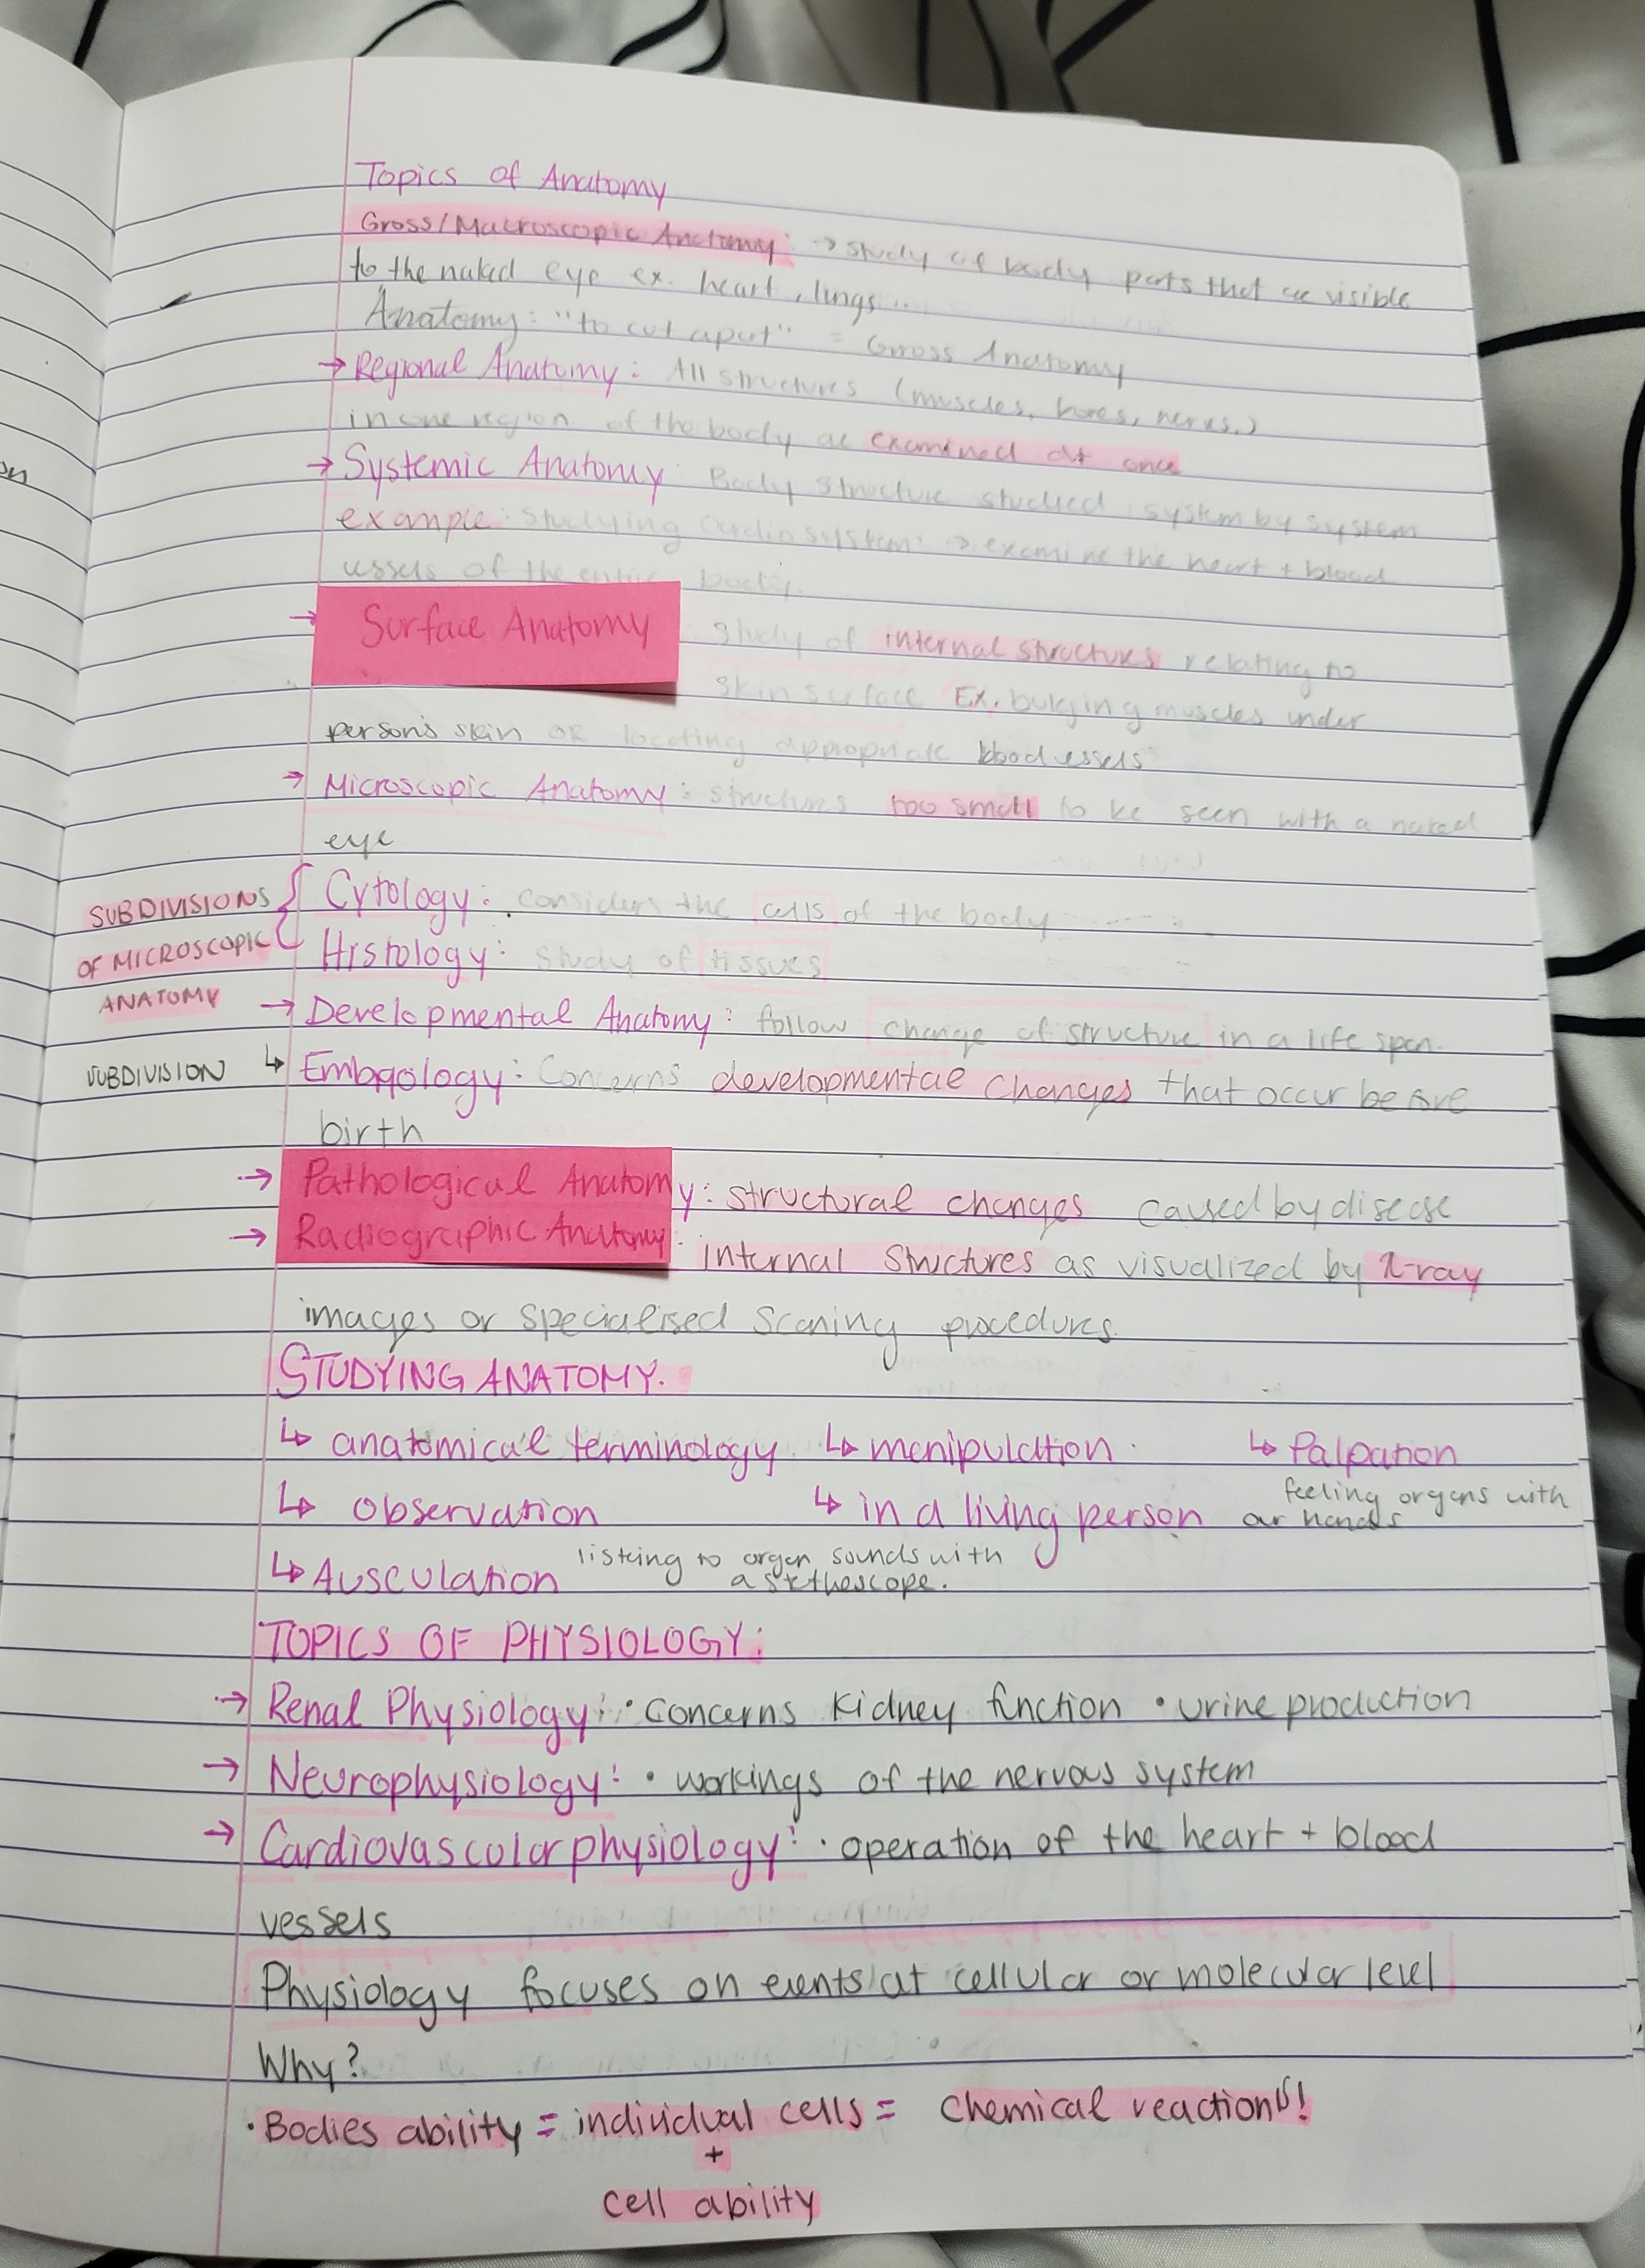 Topics of Anatomy
Gross/Macroscopic Anatomy: → study of body parts that are visible
to the naked eye ex. heart, lungs...
Anatomy: "to cut apart" = Gross Anatomy
→ Regional Anatomy: All structures (muscles, bones, nerves,)
in one region of the body are examined at once
→ Systemic Anatomy: Body structure studied system by system
example: studying cardio system: → examine the heart + blood
vessels of the entire body.
→ Surface Anatomy study of internal structures relating to
skin surface Ex. bulging muscles under
person's skin OR locating appropriate blood vessels
→ Microscopic Anatomy: structures too small to be seen with a naked
eye
SUBDIVISIONS { Cytology: considers the cells of the body
OF MICROSCOPIC Histology: study of tissues
ANATOMY → Developmental Anatomy: follow change of structure in a life span.
SUBDIVISION ↳ Embryology: Concerns developmental changes that occur before
birth
→ Pathological Anatomy: structural changes caused by disease
→ Radiographic Anatomy: internal structures as visualized by X-ray
images or specialised scanning procedures.
STUDYING ANATOMY.
↳ anatomical terminology ↳ manipulation ↳ Palpation
feeling organs with
↳ observation ↳ in a living person our hands
↳ Ausculation listening to organ sounds with
a stethescope.
TOPICS OF PHYSIOLOGY:
→ Renal Physiology: • Concerns Kidney function • urine production
→ Neurophysiology: • workings of the nervous system
→ Cardiovascular physiology: • operation of the heart + blood
vessels
Physiology focuses on events at cellular or molecular level
Why?
• Bodies ability = individual cells = chemical reactions!
+
cell ability